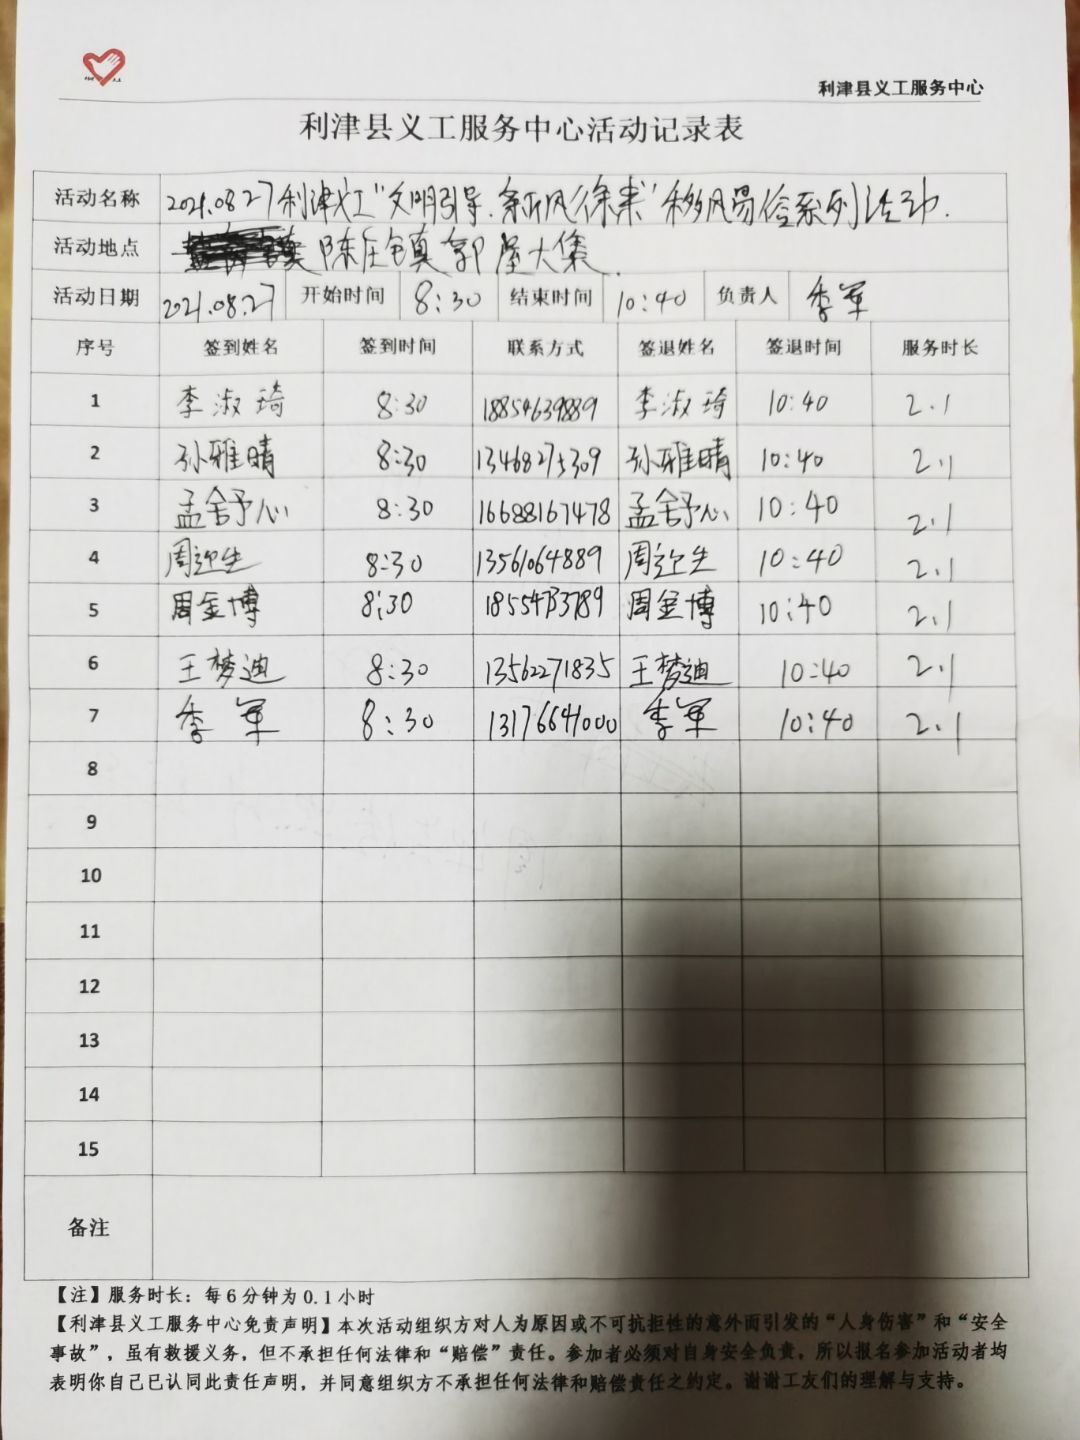 利津县义工服务中心
利津县义工服务中心活动记录表
活动名称 2021.08.27利津义工"文明引导.新风徐来"移风易俗系列活动.
活动地点 陈庄镇郭屋大集.
活动日期 2021.08.27 开始时间 8:30 结束时间 10:40 负责人 季军
序号 签到姓名 签到时间 联系方式 签退姓名 签退时间 服务时长
1 李淑琦 8:30 18854639889 李淑琦 10:40 2.1
2 孙雅晴 8:30 13468275309 孙雅晴 10:40 2.1
3 孟舒心 8:30 16688167478 孟舒心 10:40 2.1
4 周迎生 8:30 13561064889 周迎生 10:40 2.1
5 周金博 8:30 周金博 10:40 2.1
6 王梦迪 8:30 13562271835 王梦迪 10:40 2.1
7 季军 8:30 13176641000 季军 10:40 2.1
8
9
10
11
12
13
14
15
备注
【注】服务时长：每6分钟为0.1小时
【利津县义工服务中心免责声明】本次活动组织方对人为原因或不可抗拒性的意外而引发的“人身伤害”和“安全
事故”，虽有救援义务，但不承担任何法律和“赔偿”责任。参加者必须对自身安全负责，所以报名参加活动者均
表明你自己已认同此责任声明，并同意组织方不承担任何法律和赔偿责任之约定。谢谢工友们的理解与支持。